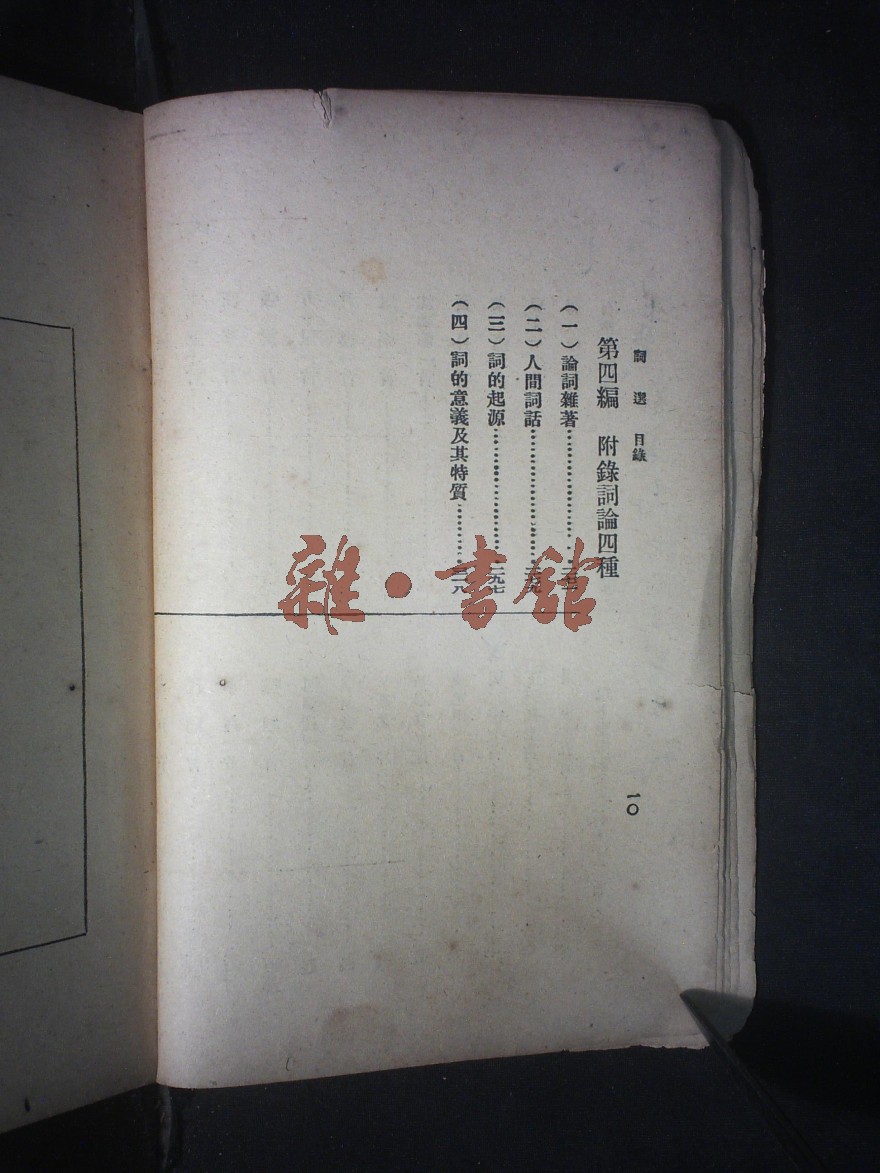 詞選 目錄
第四編 附錄詞論四種
(一)論詞雜著
(二)人間詞話
(三)詞的起源……二九七
(四)詞的意義及其特質
一〇
雜·書館